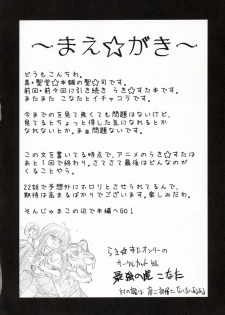 ～まえ☆がき～
どうもこんちわ。
真・聖堂☆本舗の聖☆司です。
前回・前々回に引き続き らき☆すた本です。
またまた こなたとイチャコラです。
今までのを見て無くても問題はないけど、
見てるとちょっと得した気になれるとか
なれないとか。まぁ問題ないです。
この文を書いてる時点で、アニメのらき☆すたは
あと1回で終わり。さてさて最後はどんなのが
くることやら。
22話で予想外にホロリとさせられてるんで、
期待は高まるばかりでございます。楽しみだわ。
そんじゃまこの辺で本編へGO！
らき☆すたオンリーの
サークルカット絵
最強の虎 こなた